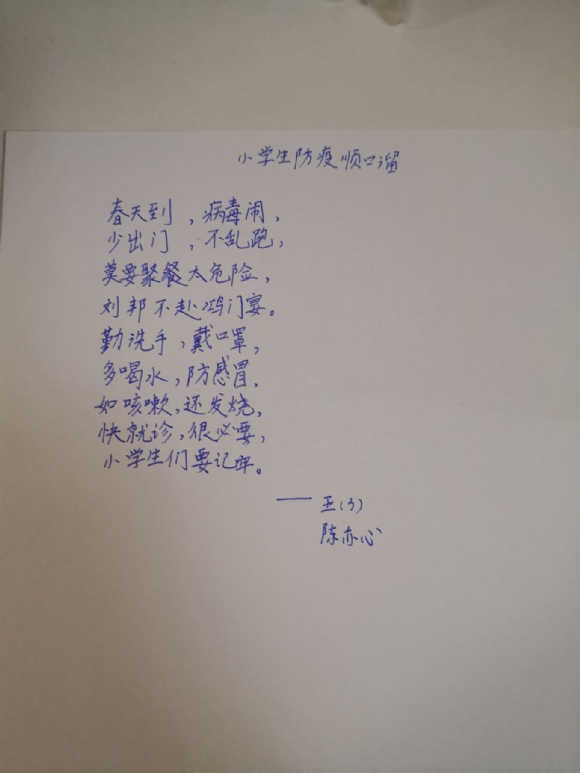 小学生防疫顺口溜
春天到，病毒闹，
少出门，不乱跑，
莫要聚餐太危险，
刘邦不赴鸿门宴。
勤洗手，戴口罩，
多喝水，防感冒，
如咳嗽，还发烧，
快就诊，很必要，
小学生们要记牢。
——五(3)
陈亦心